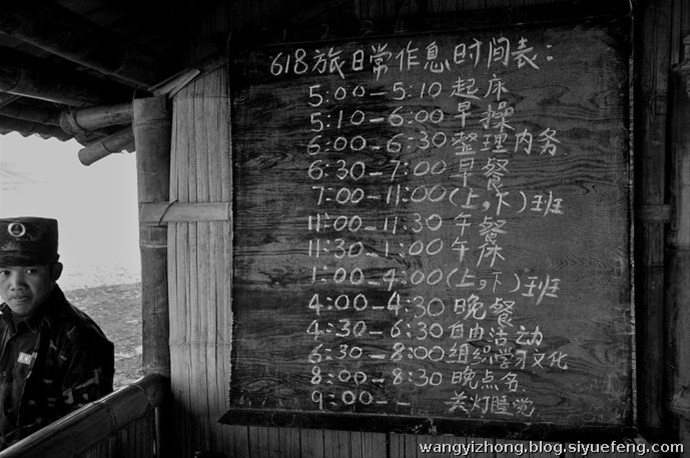 618旅日常作息时间表:
5:00-5:10起床
5:10-6:00早操
6:00-6:30整理内务
6:30-7:00早餐
7:00-11:00(上,下)班
11:00-11:30午餐
11:30-1:00午床
1:00-4:00(上,下)班
4:00-4:30晚餐
4:30-6:30自由活动
6:30-8:00组织学习文化
8:00-8:30晚点名
9:00--关灯睡觉
wangyizhong.blog.siyuefeng.com